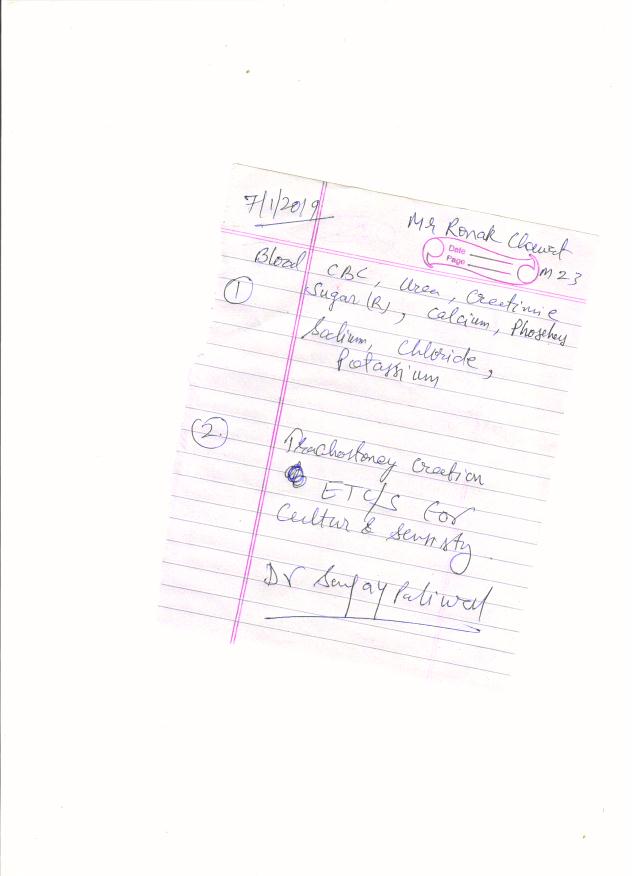 7/1/2019
Mr Ronak
Date
Page
M 23
Blood CBC, Urea, Creatinie
① Sugar (R), Calcium, Phosphors
Sodium, Chloride,
Potassium
2. Trachostomey Creation
ETC/S for
Cultur & Sensisty.
Dr Sanjay Paliwal